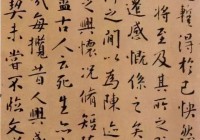 暫得於己快然
將至及其所之
遷感慨係之矣
以為陳迹
興懷況脩
古人云死生亦
每攬昔人興
契未嘗不臨文